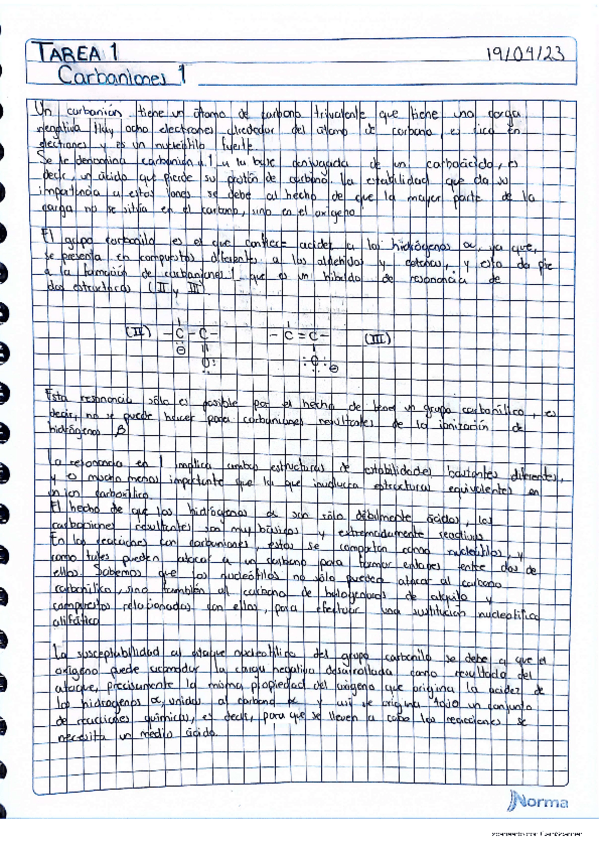 TAREA 1
19/04/23
Carbaniones 1
Un carbanión tiene un átomo de carbono trivalente que tiene una carga
negativa. Hay ocho electrones alrededor del átomo de carbono, es rico en
electrones y es un nucleófilo fuerte.
Se le denomina carbanión a 1 y la base conjugada de un carboácido, es
decir, un ácido que pierde su protón de carbono. La estabilidad que da su
importancia a estos iones se debe al hecho de que la mayor parte de la
carga no se sitúa en el carbono, sino en el oxígeno.
El grupo carbonilo es el que confiere acidez a los hidrógenos α, ya que,
se presenta en compuestos diferentes a los aldehídos y cetonas, y esta da pie
a la formación de carbaniones 1 que es un híbrido de resonancia de
dos estructuras (II y III)
(II) -C-C- -C=C- (III)
⊖ O: :O: ⊖
Esta resonancia sólo es posible por el hecho de tener un grupo carbonílico, es
decir, no se puede hacer para carbaniones resultantes de la ionización de
hidrógenos β
La resonancia en 1 implica ambas estructuras de estabilidades bastantes diferentes,
y es mucho menos importante que la que involucra estructuras equivalentes en
un ion carboxílico.
El hecho de que los hidrógenos α son sólo débilmente ácidos, los
carbaniones resultantes son muy básicos y extremadamente reactivos
En las reacciones con carbaniones, estos se comportan como nucleófilos, y
como tales pueden atacar a un carbono para formar enlaces entre dos de
ellos. Sabemos que los nucleófilos no sólo pueden atacar al carbono
carbonílico, sino también al carbono de halogenuros de alquilo y
compuestos relacionados con ellos, para efectuar una sustitución nucleofílica
alifática
La susceptabilidad al ataque nucleofílico del grupo carbonilo se debe a que el
oxígeno puede acomodar la carga negativa desarrollada como resultado del
ataque, precisamente la misma propiedad del oxígeno que origina la acidez de
los hidrógenos α, unidos al carbono α y así se origina todo un conjunto
de reacciones químicas, es decir, para que se lleven a cabo las reacciones se
necesita un medio ácido.
Norma